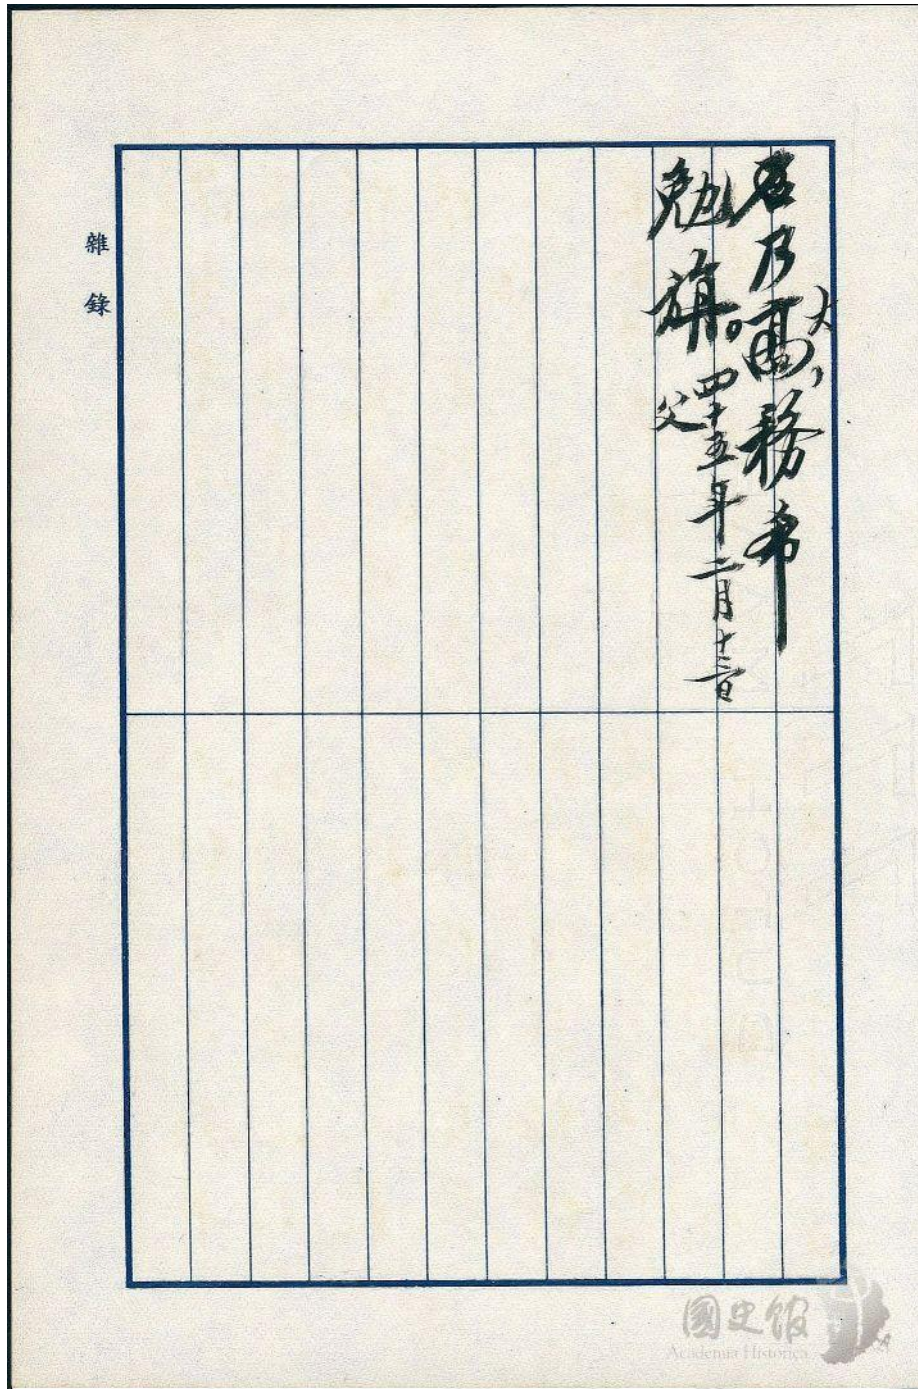 乃高大,務希
勉旃。四十五年二月十三日
父
雜錄
國史館
Academia Historica